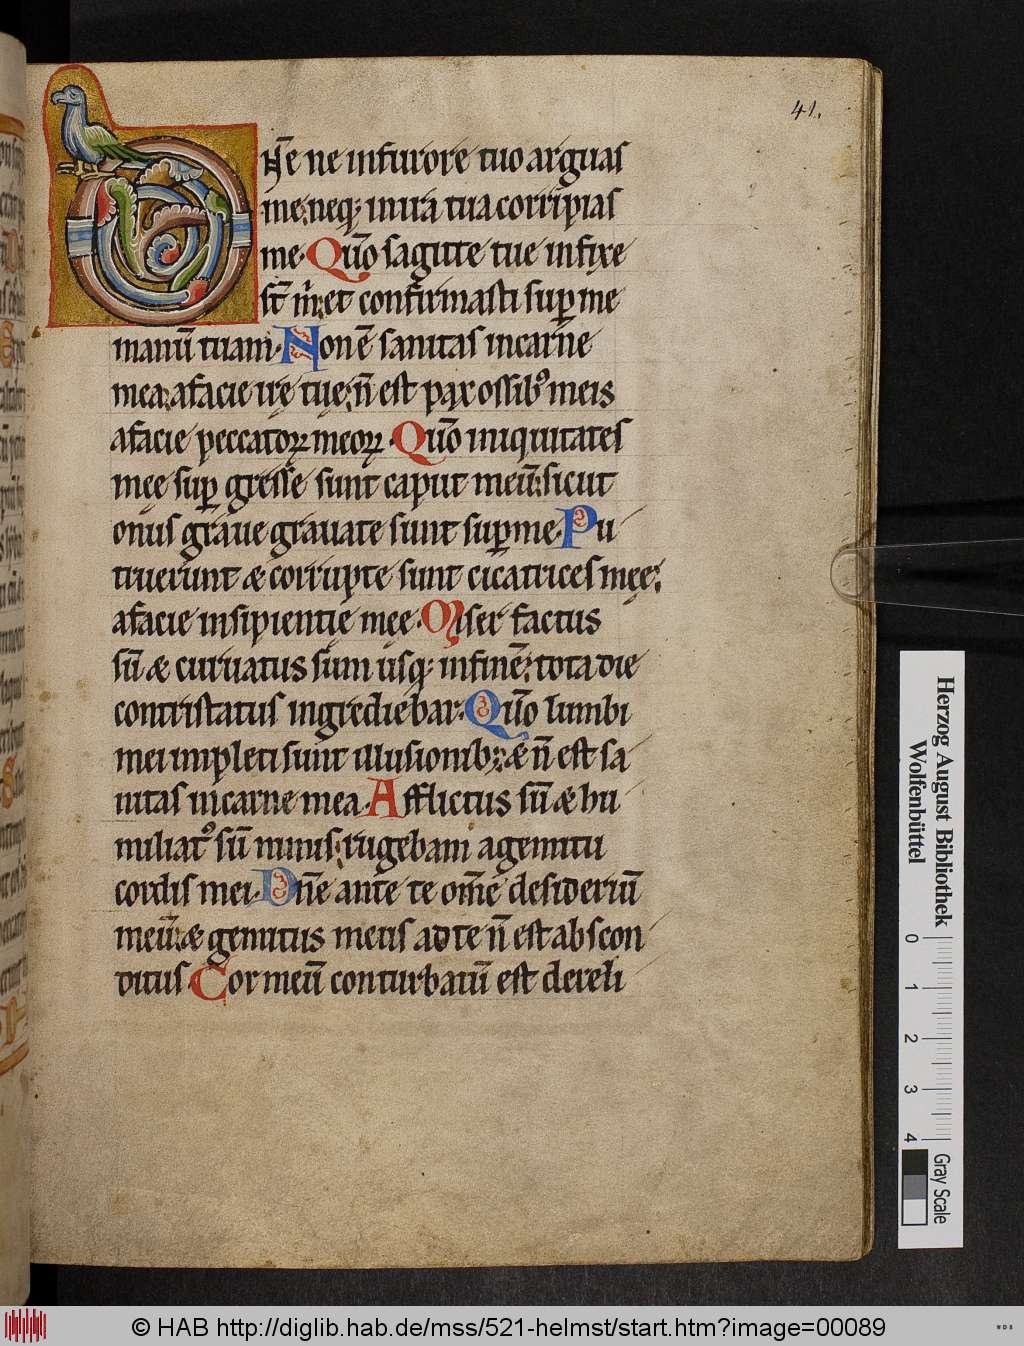 41.
DNE ne in furore tuo arguas
me; neq; in ira tua corripias
me. Qūo sagitte tue infixe
st̄ m̄; et confirmasti sup me
manū tuam. Non ē sanitas in carne
mea; a facie irę tuę; n̄ est pax ossibꝰ meis
a facie peccatoꝝ meoꝝ. Qūo iniquitates
męę sup gresse sunt caput meū; sicut
onus graue grauate sunt sup me. Pu
truerunt & corrupte sunt cicatrices męę;
a facie insipientię męę. Miser factus
sū & curuatus sum usq; in finē; tota die
contristatus ingrediebar. Qūo lumbi
mei impleti sunt illusionib;; & n̄ est sa
nitas in carne mea. Afflictus sū & hu
miliatꝰ sū nimis; rugebam a gemitu
cordis mei. Dn̄e ante te om̄e desideriū
meū; & gemitus meus a te n̄ est abscon
ditus. Cor meū conturbatū est dereli
Herzog August Bibliothek
Wolfenbüttel
0 1 2 3 4
Gray Scale
© HAB http://diglib.hab.de/mss/521-helmst/start.htm?image=00089